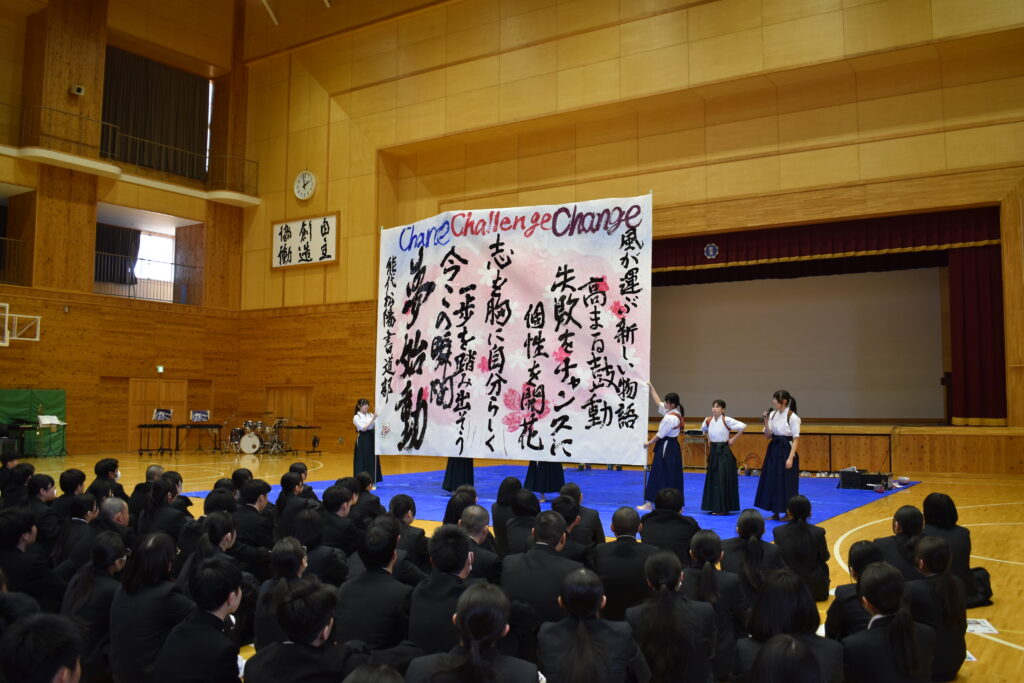 Chance Challenge Change
風が運ぶ新しい物語
高まる鼓動
失敗をチャンスに
個性を開花
志を胸に自分らしく
一歩を踏み出そう
今この瞬間
夢始動
能代松陽書道部
自主
創造
協働